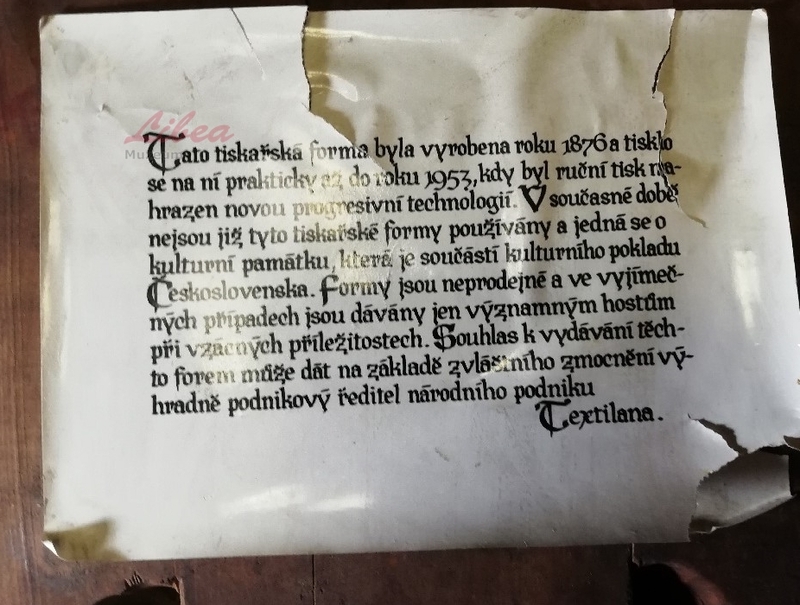 Libea
Tato tiskařská forma byla vyrobena roku 1876 a tisklo
se na ní prakticky až do roku 1953, kdy byl ruční tisk na-
hrazen novou progresivní technologií. V současné době
nejsou již tyto tiskařské formy používány a jedná se o
kulturní památku, která je součástí kulturního pokladu
Československa. Formy jsou neprodejné a ve vyjímeč-
ných případech jsou dávány jen významným hostům
při vzácných příležitostech. Souhlas k vydávání těch-
to forem může dát na základě zvláštního zmocnění vý-
hradně podnikový ředitel národního podniku
Textilana.